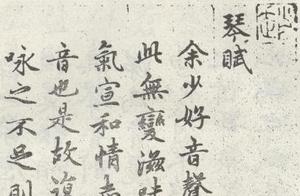 琴賦
余少好音聲
此無變滋味
氣宣和情志
音也是故復
咏之不足則